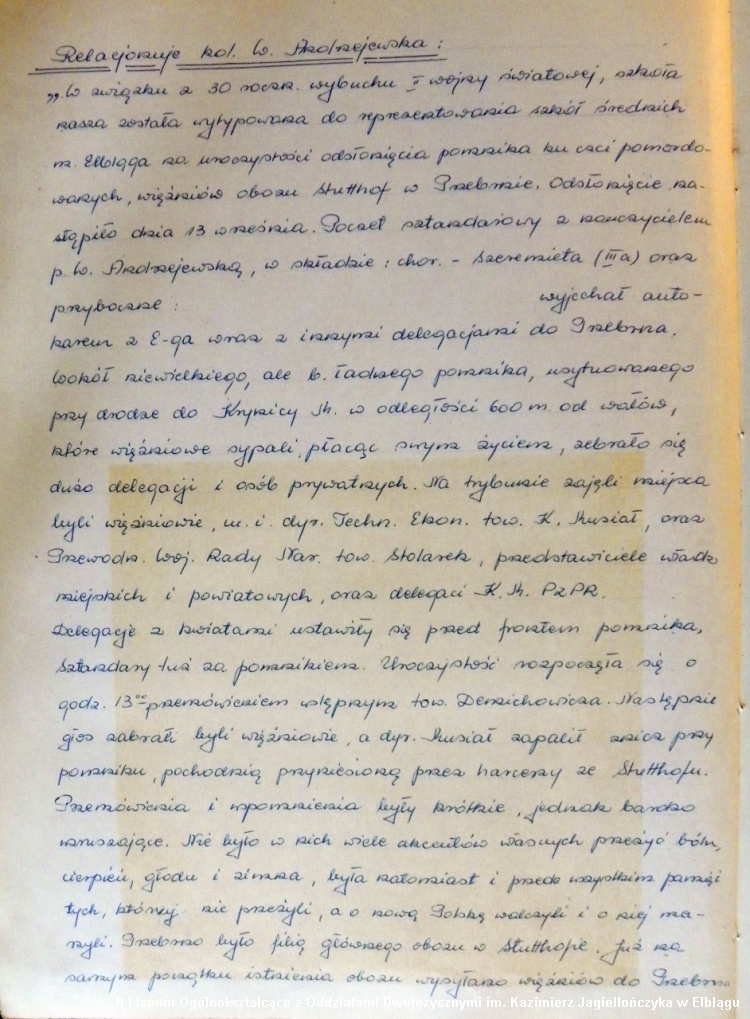 Relacjonuje kol. W. Andrzejewska:
„W związku z 30 roczn. wybuchu II wojny światowej, szkoła
nasza została wytypowana do reprezentowania szkół średnich
m. Elbląga na uroczystości odsłonięcia pomnika ku czci pomordo-
wanych, więźniów obozu Stutthof w Przebrnie. Odsłonięcie na-
stąpiło dnia 13 września. Poczet sztandarowy z nauczycielem
p. W. Andrzejewską, w składzie: chor. - Szeremieta (IIIa) oraz
przyboczne: wyjechał auto-
karem z E-ga wraz z innymi delegacjami do Przebrna.
Wokół niewielkiego, ale b. ładnego pomnika, usytuowanego
przy drodze do Krynicy M. w odległości 600 m. od wałów,
które więźniowie sypali, płacąc swym życiem, zebrało się
dużo delegacji i osób prywatnych. Na trybunie zajęli miejsca
byli więźniowie, m. i. dyr. Techn. Ekon. tow. K. Musiał, oraz
Przewodn. Woj. Rady Nar. tow. Stolarek, przedstawiciele władz
miejskich i powiatowych, oraz delegaci K. M. PZPR.
Delegacje z kwiatami ustawiły się przed frontem pomnika,
sztandary tuż za pomnikiem. Uroczystość rozpoczęła się o
godz. 13⁰⁰ przemówieniem wstępnym tow. Demichowicza. Następnie
głos zabrali byli więźniowie, a dyr. Musiał zapalił znicz przy
pomniku, pochodnią przyniesioną przez harcerzy ze Stutthofu.
Przemówienia i wspomnienia były krótkie, jednak bardzo
wzruszające. Nie było w nich wiele akcentów własnych przeżyć bólu,
cierpień, głodu i zimna, była natomiast i przede wszystkim pamięć
tych, którzy nie przeżyli, a o nową Polskę walczyli i o niej ma-
rzyli. Przebrno było filią głównego obozu w Stutthofie. Już na
samym początku istnienia obozu wysyłano więźniów do Przebrna
II Liceum Ogólnokształcące z Oddziałami Dwujęzycznymi im. Kazimierz Jagiellończyka w Elblągu